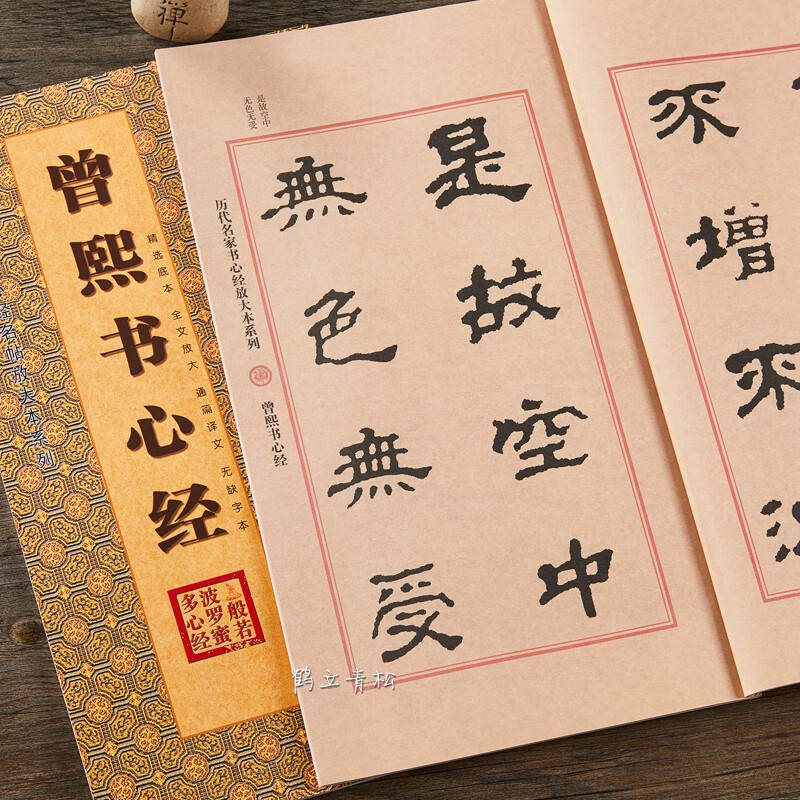 禅
曾熙书心经
精选底本 全文放大 通篇译文 无缺字本
名帖放大本系列
般若
波罗蜜
多心经
是故空中
无色无受
历代名家书心经放大本系列
曾熙书心经
不增不
是故空中
無色無受
鹤立青松